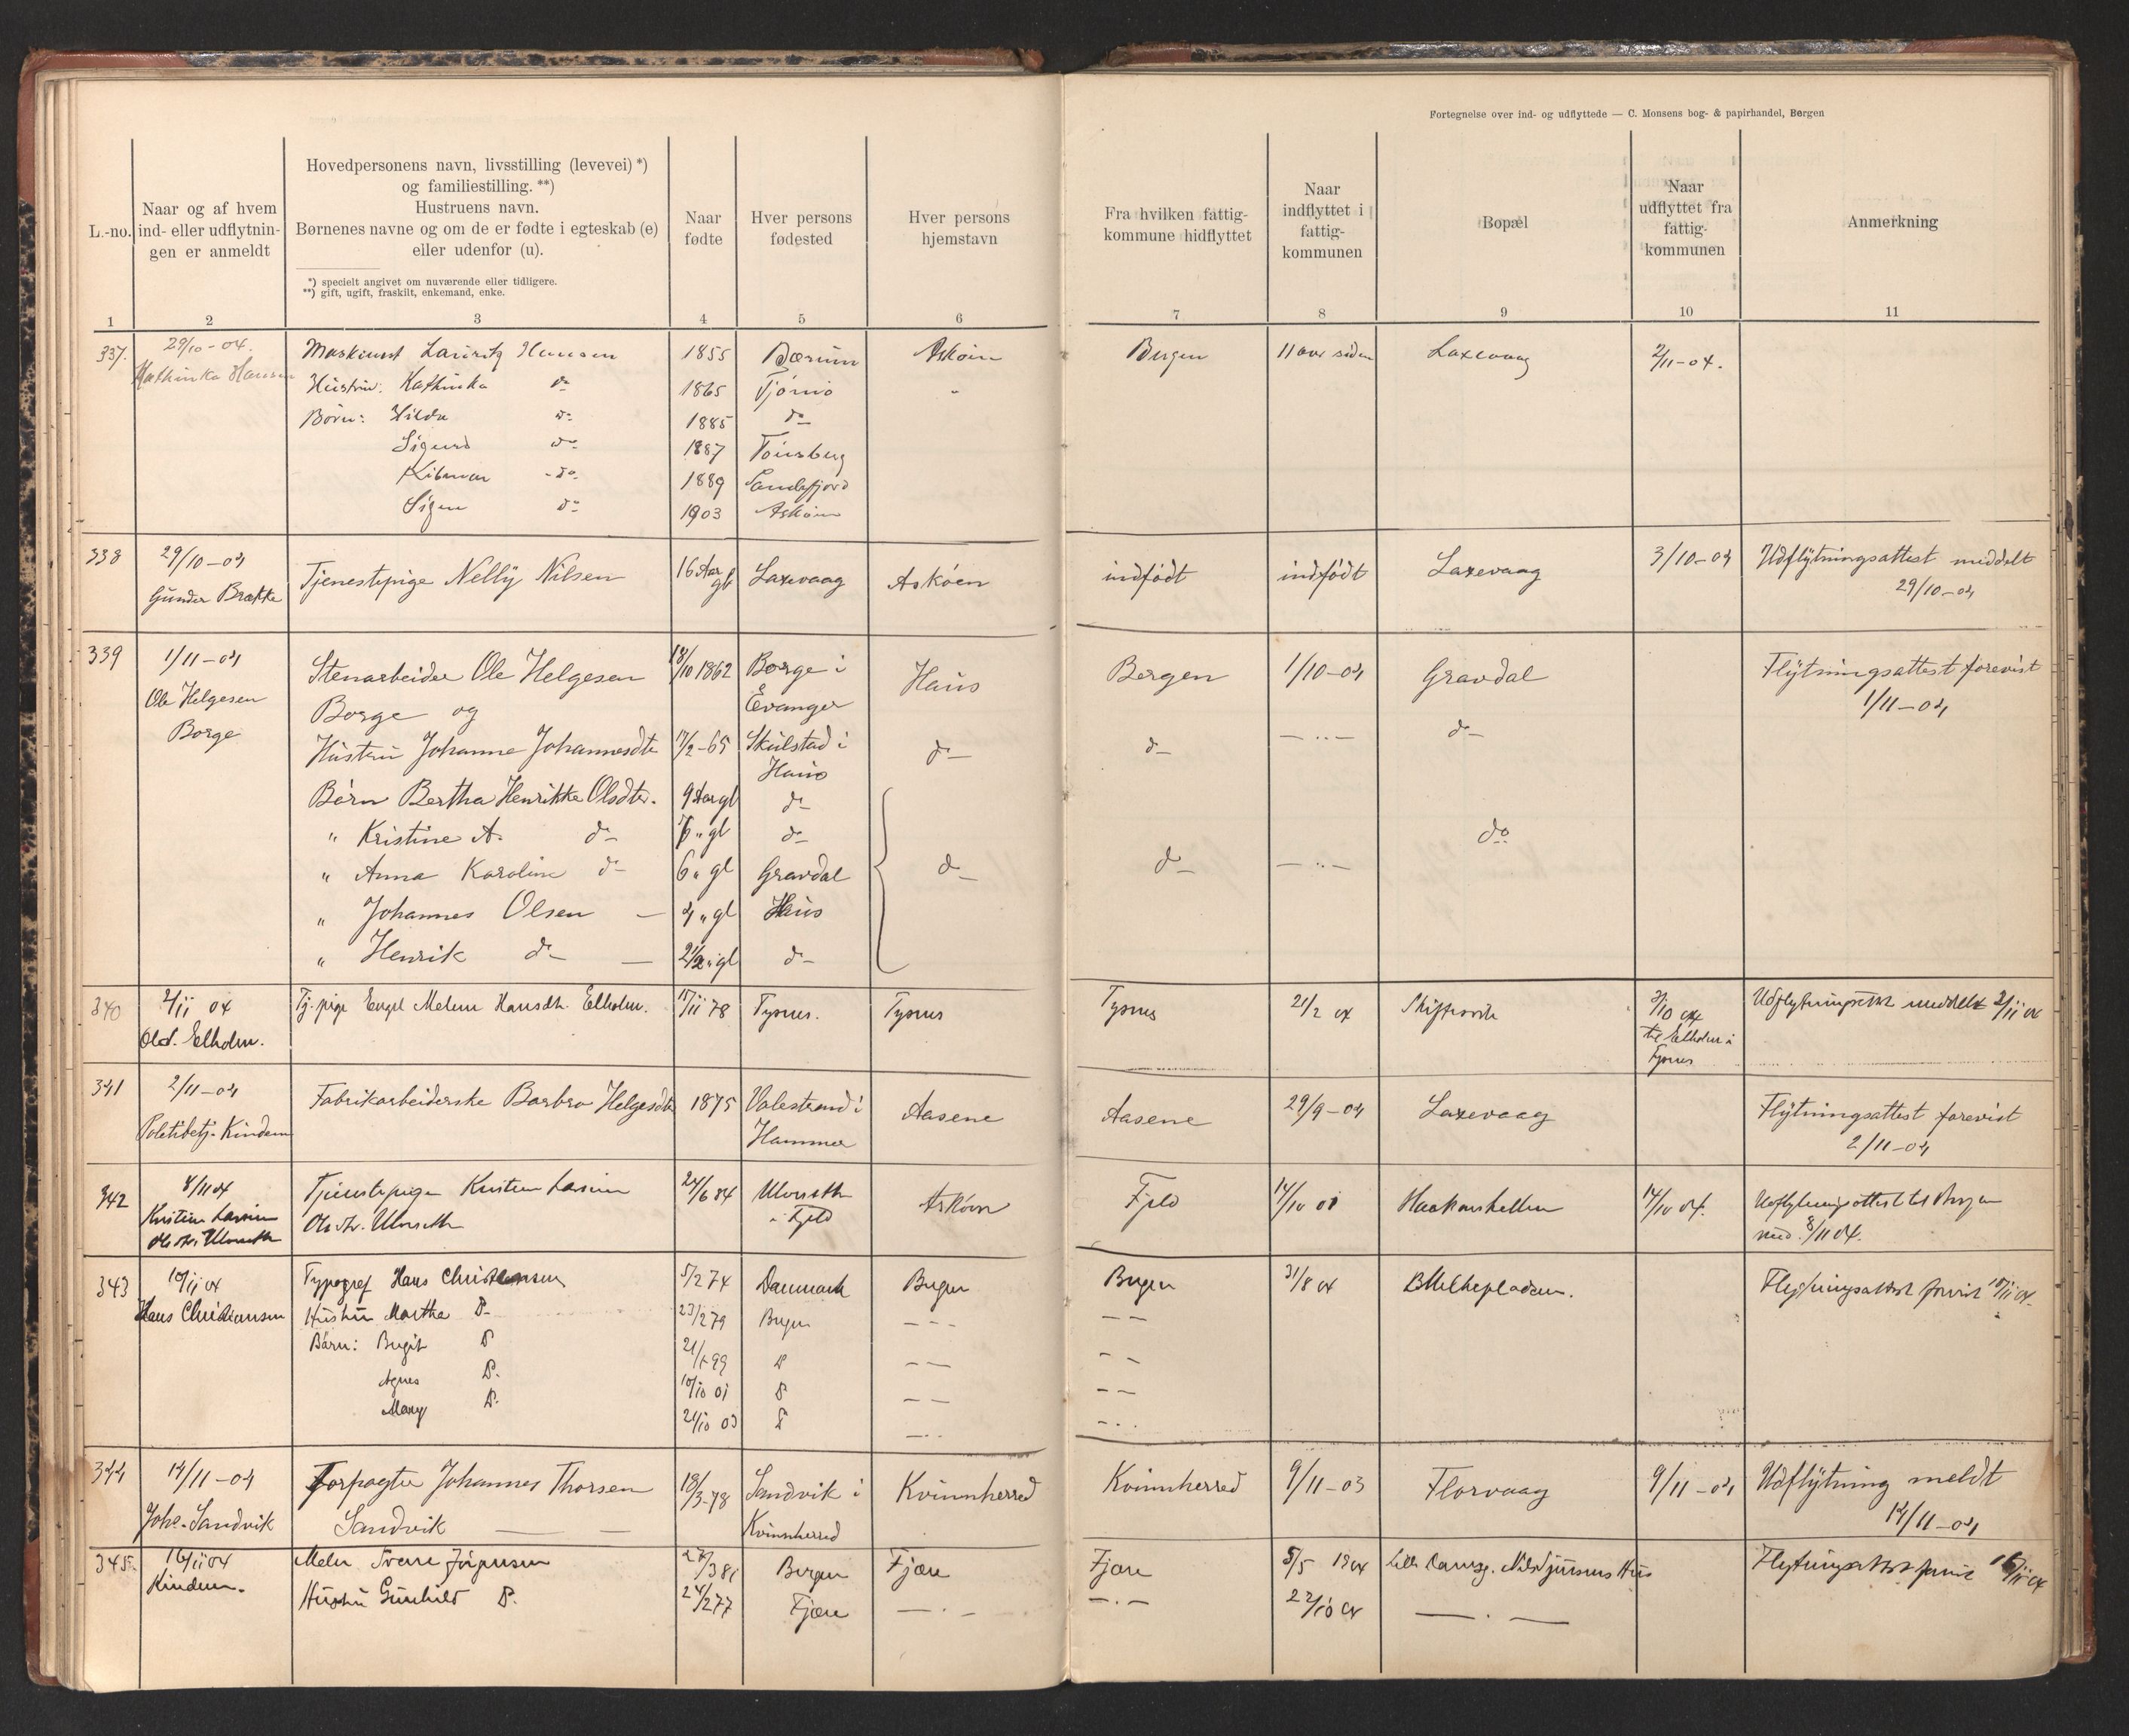 Fortegnelse over ind- og udflyttede — C. Monsens bog- & papirhandel, Bergen
L.-no.
Naar og af hvem
ind- eller udflytnin-
gen er anmeldt
Hovedpersonens navn, livsstilling (levevei) *)
og familiestilling. **)
Hustruens navn.
Børnenes navne og om de er fødte i egteskab (e)
eller udenfor (u).
*) specielt angivet om nuværende eller tidligere.
**) gift, ugift, fraskilt, enkemand, enke.
Naar
fødte
Hver persons
fødested
Hver persons
hjemstavn
Fra hvilken fattig-
kommune hidflyttet
Naar
indflyttet i
fattig-
kommunen
Bopæl
Naar
udflyttet fra
fattig-
kommunen
Anmerkning
1 2 3 4 5 6 7 8 9 10 11
337. 29/10-04. Maskinist Lauritz Hansen 1855 Bærum Askøen Bergen 11 aar siden Laxevaag 2/11-04.
Kathinka Hansen Hustru: Kathinka do 1865 Tjømø "
Børn: Hilda do 1885 do
Sigurd do 1887 Tønsberg
do 1889 Sandefjord
do 1903 Askøen
338 29/10-04 Tjenestepige Nelly Nilsen 16 Aar gl Laxevaag Askøen indfødt indfødt Laxevaag 3/10-04 Udflytningsattest meddelt
Gunder Brække 29/10-04
339 1/11-04 Stenarbeider Ole Helgesen 18/10 1862 Borge i Haus Bergen 1/10-04 Gravdal Flytningsattest forevist
Ole Helgesen Borge og Evanger 1/11-04
Borge Hustru Johanne Johannesdtr 17/2-65 Skulstad i do do — „ — do
Haus
Børn Bertha Henrikke Olsdtr. 9 Aar gl do
" Kristine A. do " gl do do
" Anna Karoline do 6 " gl Gravdal do do — „ —
" Johannes Olsen — 4 " gl Haus
" Henrik do — 2 1/2 " gl do
340 2/11 04 Tj. pige Engel Malene Hansdtr. Elholm. 17/11 78 Tysnes. Tysnes Tysnes 21/2 04 3/10 04 Udflytningsattest meddelt 2/11 04
Elholm. til Elholm i
Tysnes
341 2/11-04 Fabrikarbeiderske Barbro Helgesdtr 1875 Valestrand i Aasene Aasene 29/9-04 Laxevaag Flytningsattest forevist
Politibetj. Kindem Hammer 2/11-04
342 8/11 04 Tjenestepige Kristine Larsine 24/6 84 Askøen Fjeld 14/10 01 Haakonshellen 14/10 04. Udflytningsattest til Bergen
Kristine Larsine Olsdtr. i Fjeld med. 8/11 04.
Olsdtr.
343 10/11 04 Typograf Hans Christiansen 5/2 74 Danmark Bergen Bergen 31/8 04 Flytningsattest forevist 10/11 04.
Hans Christiansen Hustru Martha D. 23/2 79 Bergen — — — —
Børn: Birgit D 99 D — — — —
Agnes D. 10/10 01 D — — — —
Mary D. 21/10 03 D — . .
344 14/11-04 Forpagter Johannes Thorsen 18/3-78 Sandvik i Kvinnherred Kvinnherred 9/11-03 Florvaag 9/11-04 Udflytning meldt
Johs. Sandvik Sandvik — — Kvinnherred 14/11-04
345. 16/11 04 Maler Sverre Jørgensen 27/3 81 Bergen Fjære Fjære 5/5 1904 Hus Flytningsattest forevist 16/11 04
Kindem. Hustru Gunhild D. 24/2 77 Fjære — . — — . — 22/10 04 — . —